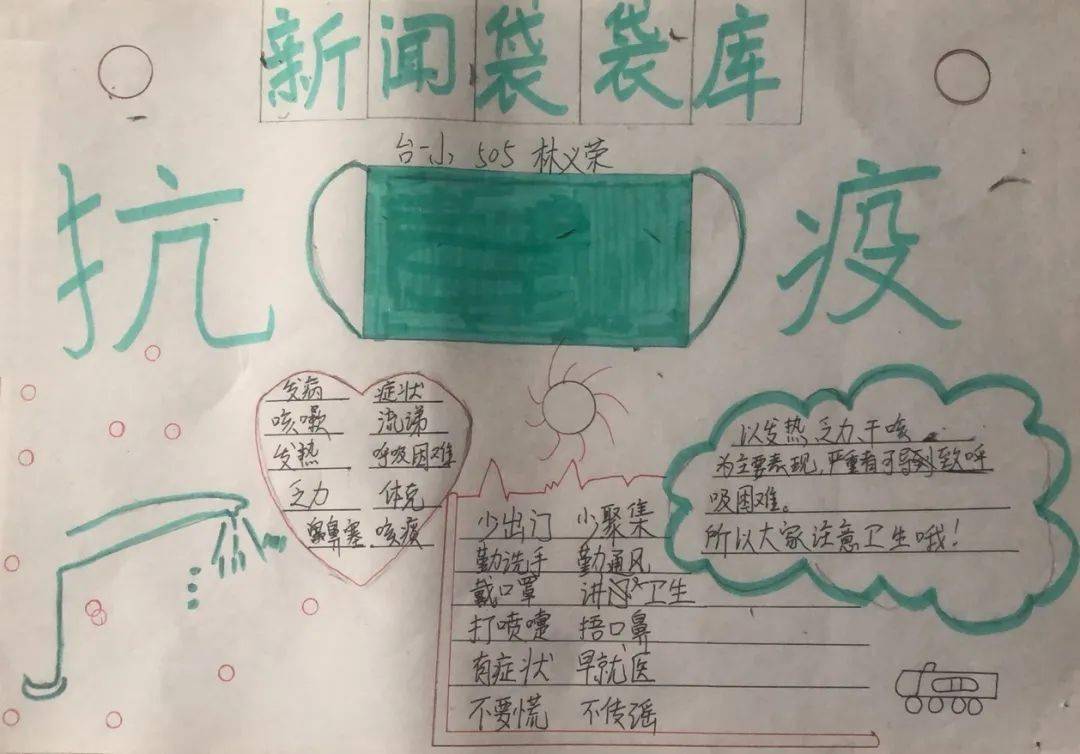 新闻袋袋库
台一小 505 林义荣
抗 疫
发病 症状
咳嗽 流涕
发热 呼吸困难
乏力 体克
鼻塞 咳痰
少出门 少聚集
勤洗手 勤通风
戴口罩 讲卫生
打喷嚏 捂口鼻
有症状 早就医
不要慌 不传谣
以发热,乏力、干咳
为主要表现,严重者可导致呼
吸困难。
所以大家注意卫生哦!